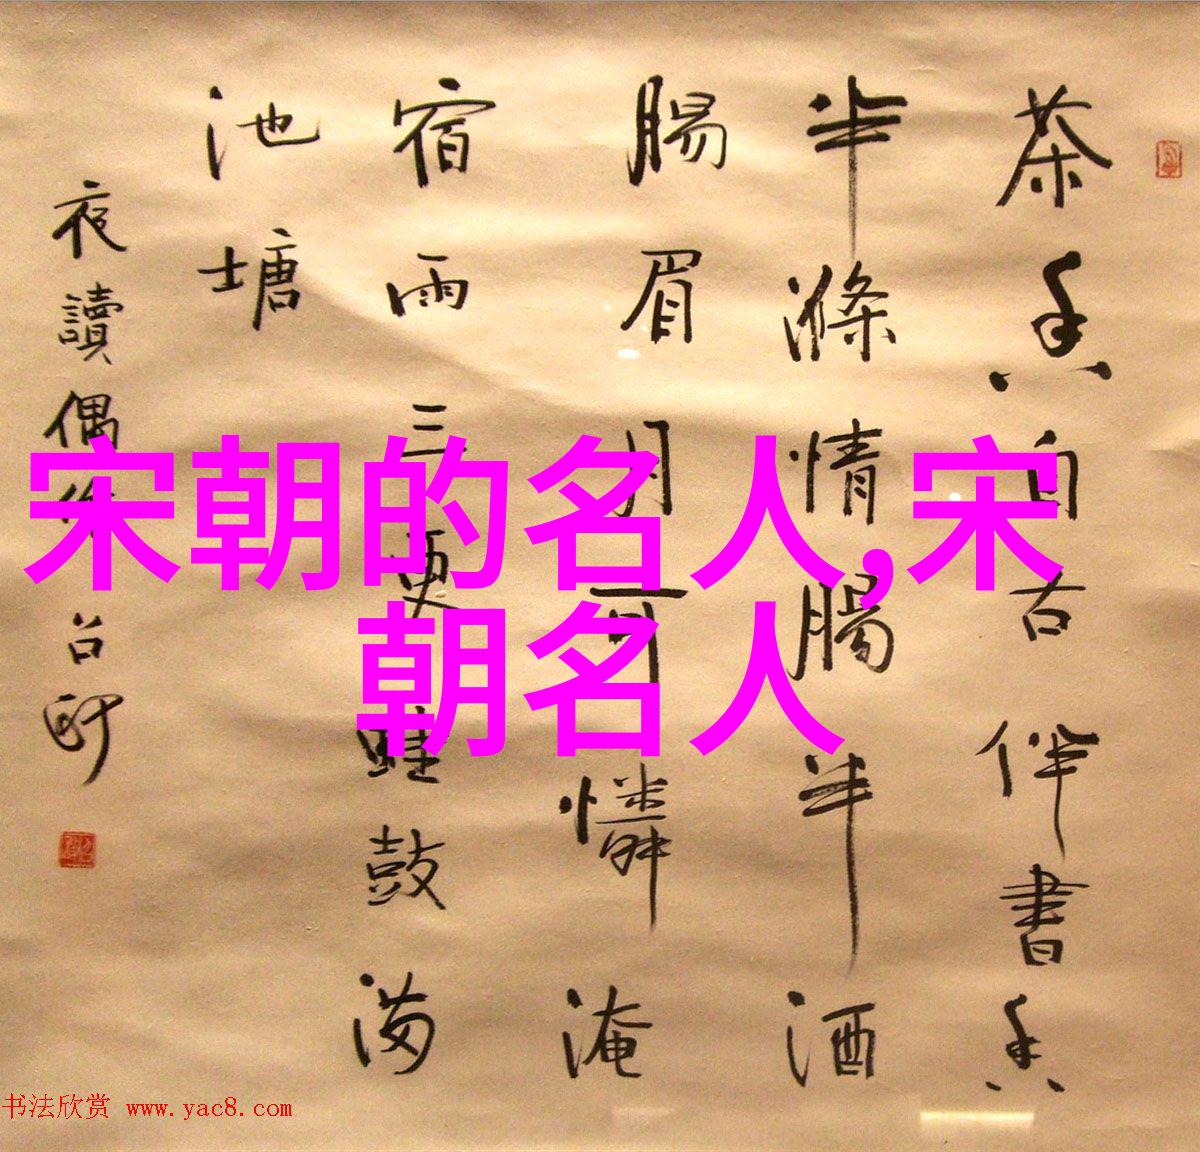 茶香自古伴書香
半滌情腸半酒
腸眉月可憐淹
宿雨三更蛙鼓满
池塘
夜讀偶作
台
宋朝的名人,宋
朝名人
书法欣赏 www.yac8.com